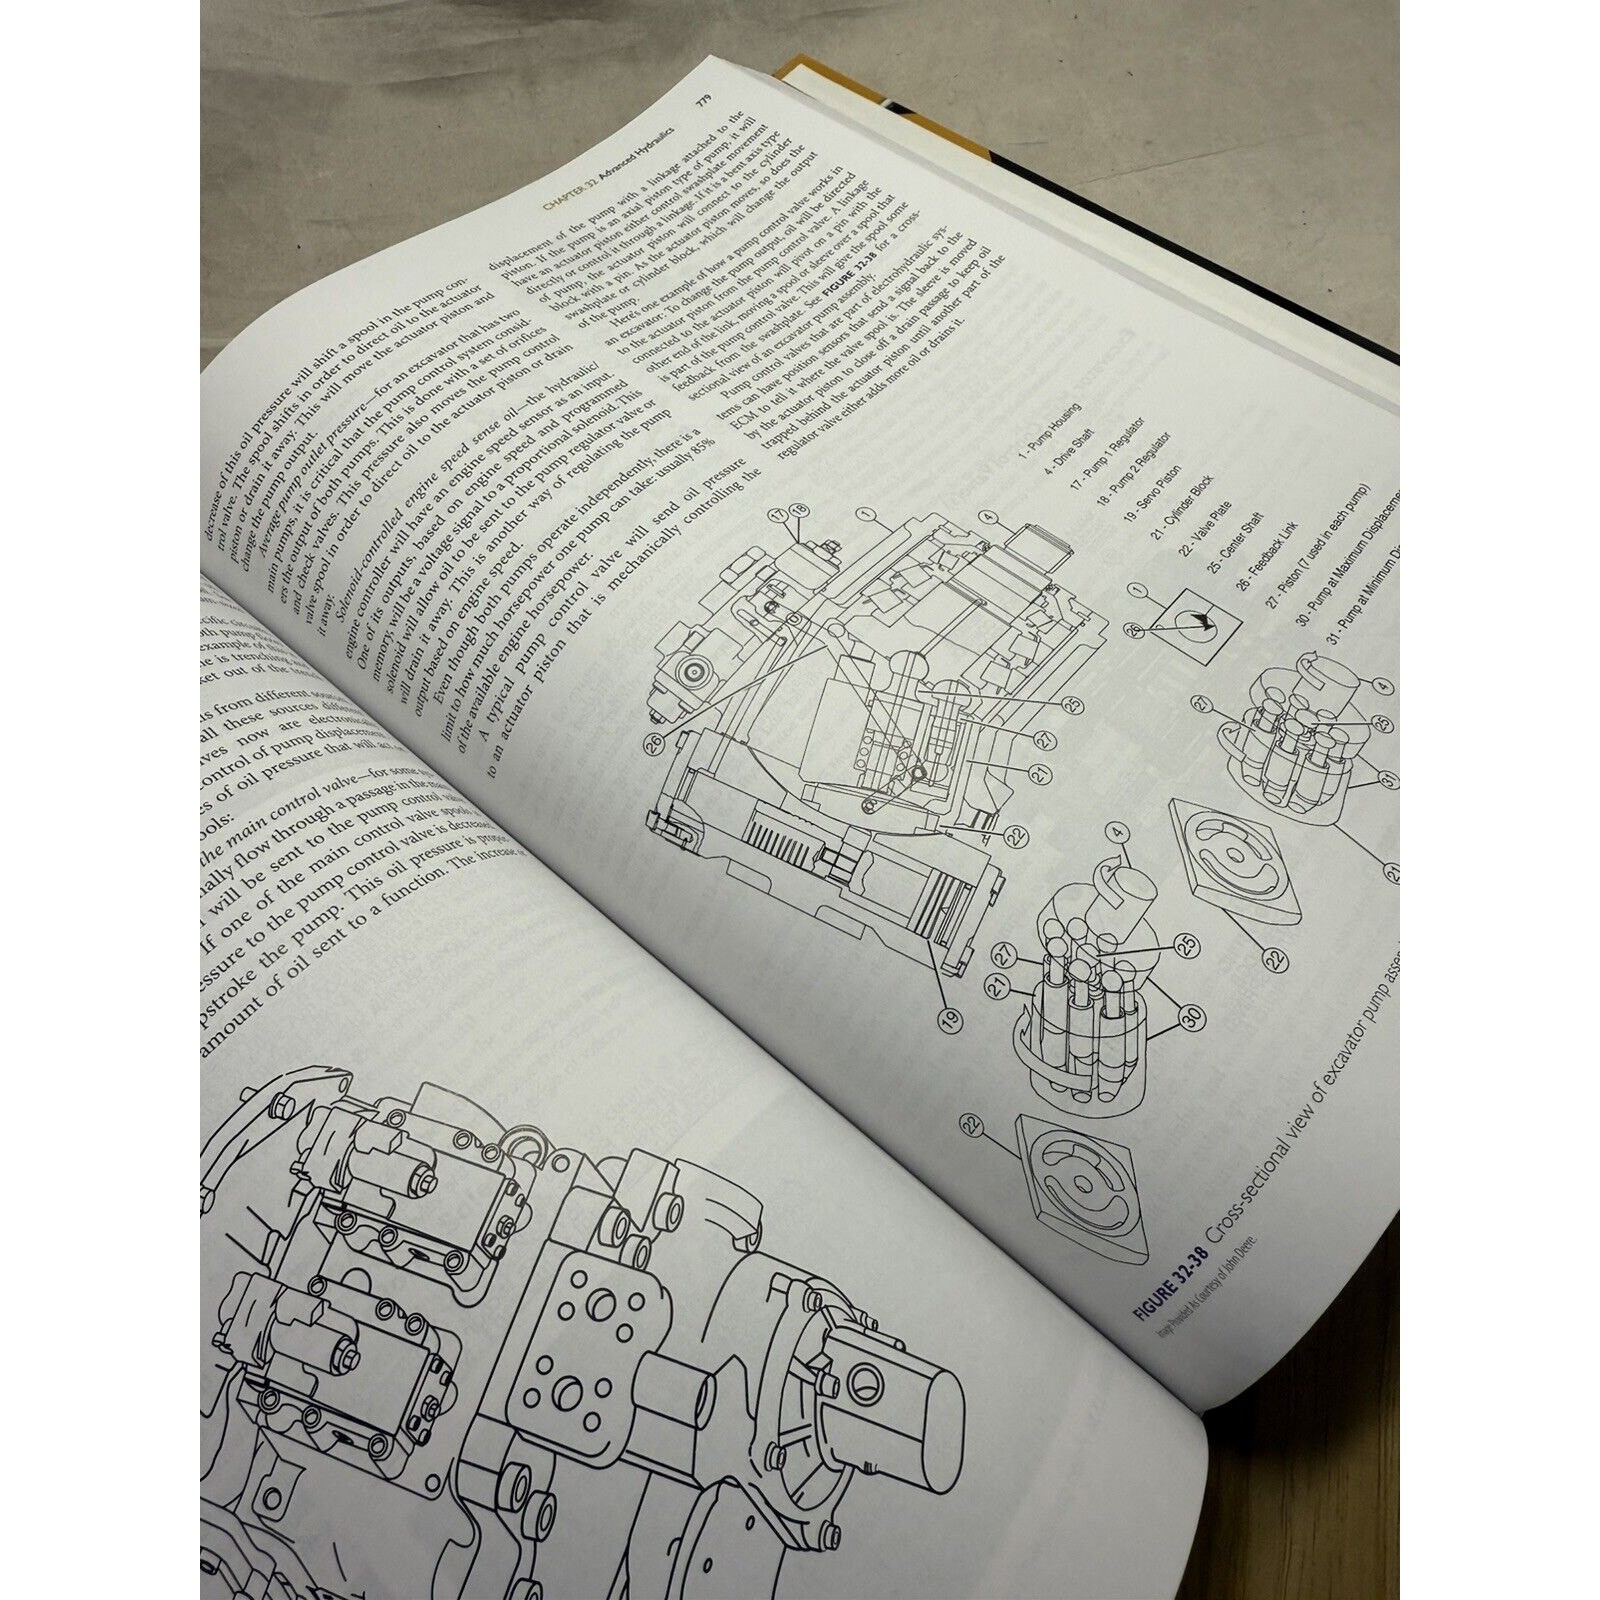 CHAPTER 32 Advanced Hydraulics 779
decrease of this oil pressure will shift a spool in the pump con-
trol valve. The spool shifts in order to direct oil to the actuator
piston or drain it away. This will move the actuator piston and
change the pump output.
Average pump outlet pressure—for an excavator that has two
main pumps, it is critical that the pump control system consid-
ers the output of both pumps. This is done with a set of orifices
and check valves. This pressure also moves the pump control
valve spool in order to direct oil to the actuator piston or drain
it away.
Solenoid-controlled engine speed sense oil—the hydraulic/
engine controller will have an engine speed sensor as an input.
One of its outputs, based on engine speed and programmed
memory, will be a voltage signal to a proportional solenoid. This
solenoid will allow oil to be sent to the pump regulator valve or
will drain it away. This is another way of regulating the pump
output based on engine speed.
Even though both pumps operate independently, there is a
limit to how much horsepower one pump can take: usually 85%
of the available engine horsepower.
A typical pump control valve will send oil pressure
to an actuator piston that is mechanically controlling the
displacement of the pump with a linkage attached to the
piston. If the pump is an axial piston type of pump, it will
have an actuator piston either control swashplate movement
directly or control it through a linkage. If it is a bent axis type
of pump, the actuator piston will connect to the cylinder
block with a pin. As the actuator piston moves, so does the
swashplate or cylinder block, which will change the output
of the pump.
Here's one example of how a pump control valve works in
an excavator. To change the pump output, oil will be directed
to the actuator piston from the pump control valve. A linkage
connected to the actuator piston will pivot on a pin with the
other end of the link, moving a spool or sleeve over a spool that
is part of the pump control valve. This will give the spool some
feedback from the swashplate. See FIGURE 32-38 for a cross-
sectional view of an excavator pump assembly.
Pump control valves that are part of electrohydraulic sys-
tems can have position sensors that send a signal back to the
ECM to tell it where the valve spool is. The sleeve is moved
by the actuator piston to close off a drain passage to keep oil
trapped behind the actuator piston until another part of the
regulator valve either adds more oil or drains it.
1 - Pump Housing
4 - Drive Shaft
17 - Pump 1 Regulator
18 - Pump 2 Regulator
19 - Servo Piston
21 - Cylinder Block
22 - Valve Plate
25 - Center Shaft
26 - Feedback Link
27 - Piston (7 used in each pump)
30 - Pump at Maximum Displaceme
31 - Pump at Minimum Di
17
18
1
4
26
25
27
21
22
19
1
26
4
27
25
31
21
22
4
27
21
25
30
22
FIGURE 32-38 Cross-sectional view of excavator pump asse
Image Provided As Courtesy of John Deere.
example of
ne is trenching
ket out of the
from different
all these sources
ves now are
ontrol of pump displacement
es of oil pressure that will
ools:
the main control valve—for some
nally flow through a passage in the
will be sent to the pump control
If one of the main control valve
essure to the pump control valve is decreased
pstroke the pump. This oil pressure is
amount of oil sent to a function. The increase or